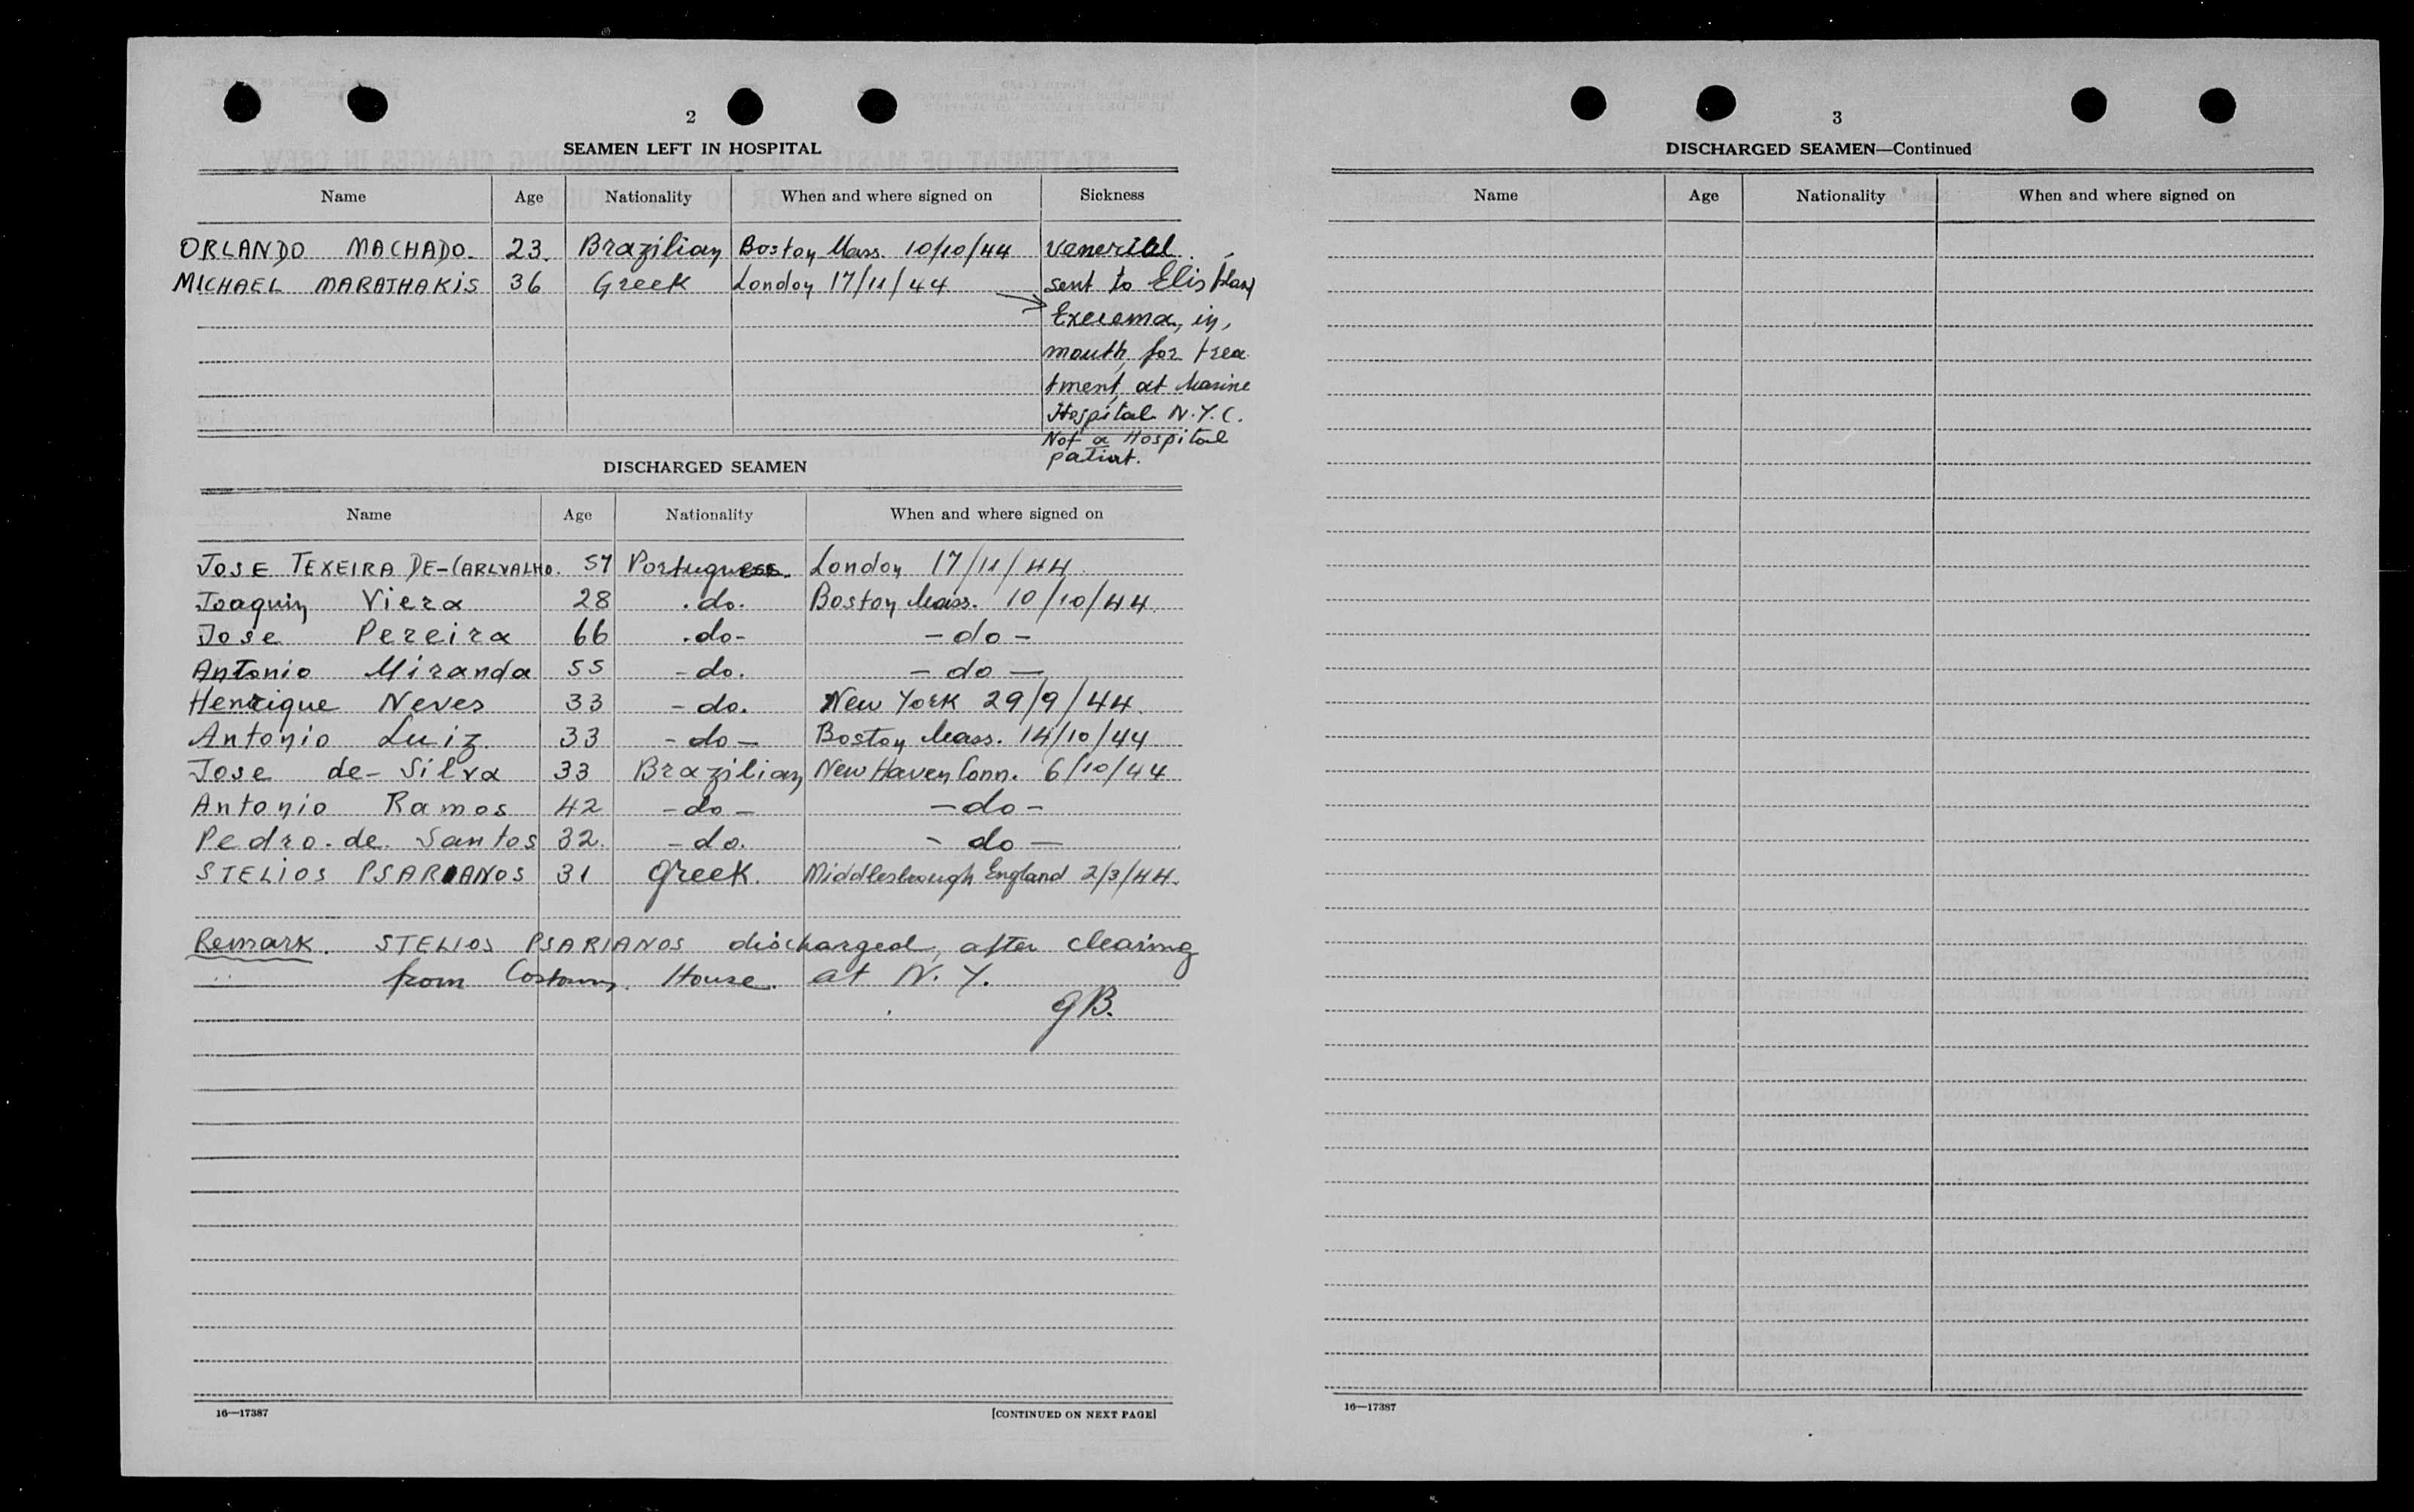 2
SEAMEN LEFT IN HOSPITAL
Name Age Nationality When and where signed on Sickness
ORLANDO MACHADO. 23. Brazilian Boston Mass. 10/10/44 venerial
MICHAEL MARATHAKIS 36 Greek London 17/11/44 sent to Elis Island
Execema, in,
mouth, for trea
tment, at Marine
Hospital N.Y.C.
Not a Hospital
patint.
DISCHARGED SEAMEN
Name Age Nationality When and where signed on
JOSE TEXEIRA DE-CARLVALHO. 57 Portuguese. London 17/11/44.
Joaquin Viera 28 .do. Boston Mass. 10/10/44.
Jose Pereira 66 .do- - do -
Antonio Miranda 55 - do. - do -
Henrique Neves 33 - do. New York 29/9/44.
Antonio Luiz 33 - do - Boston Mass. 14/10/44
Jose de- Silva 33 Brazilian New Haven Conn. 6/10/44
Antonio Ramos 42 - do - - do -
Pedro. de. Santos 32. - do. - do -
STELIOS PSARIANOS 31 Greek. Middlesbrough England 2/3/44.
Remark. STELIOS PSARIANOS discharged, after clearing
from Costoms. House. at N.Y.
GB.
16—17387 [CONTINUED ON NEXT PAGE]
3
DISCHARGED SEAMEN—Continued
Name Age Nationality When and where signed on
16—17387